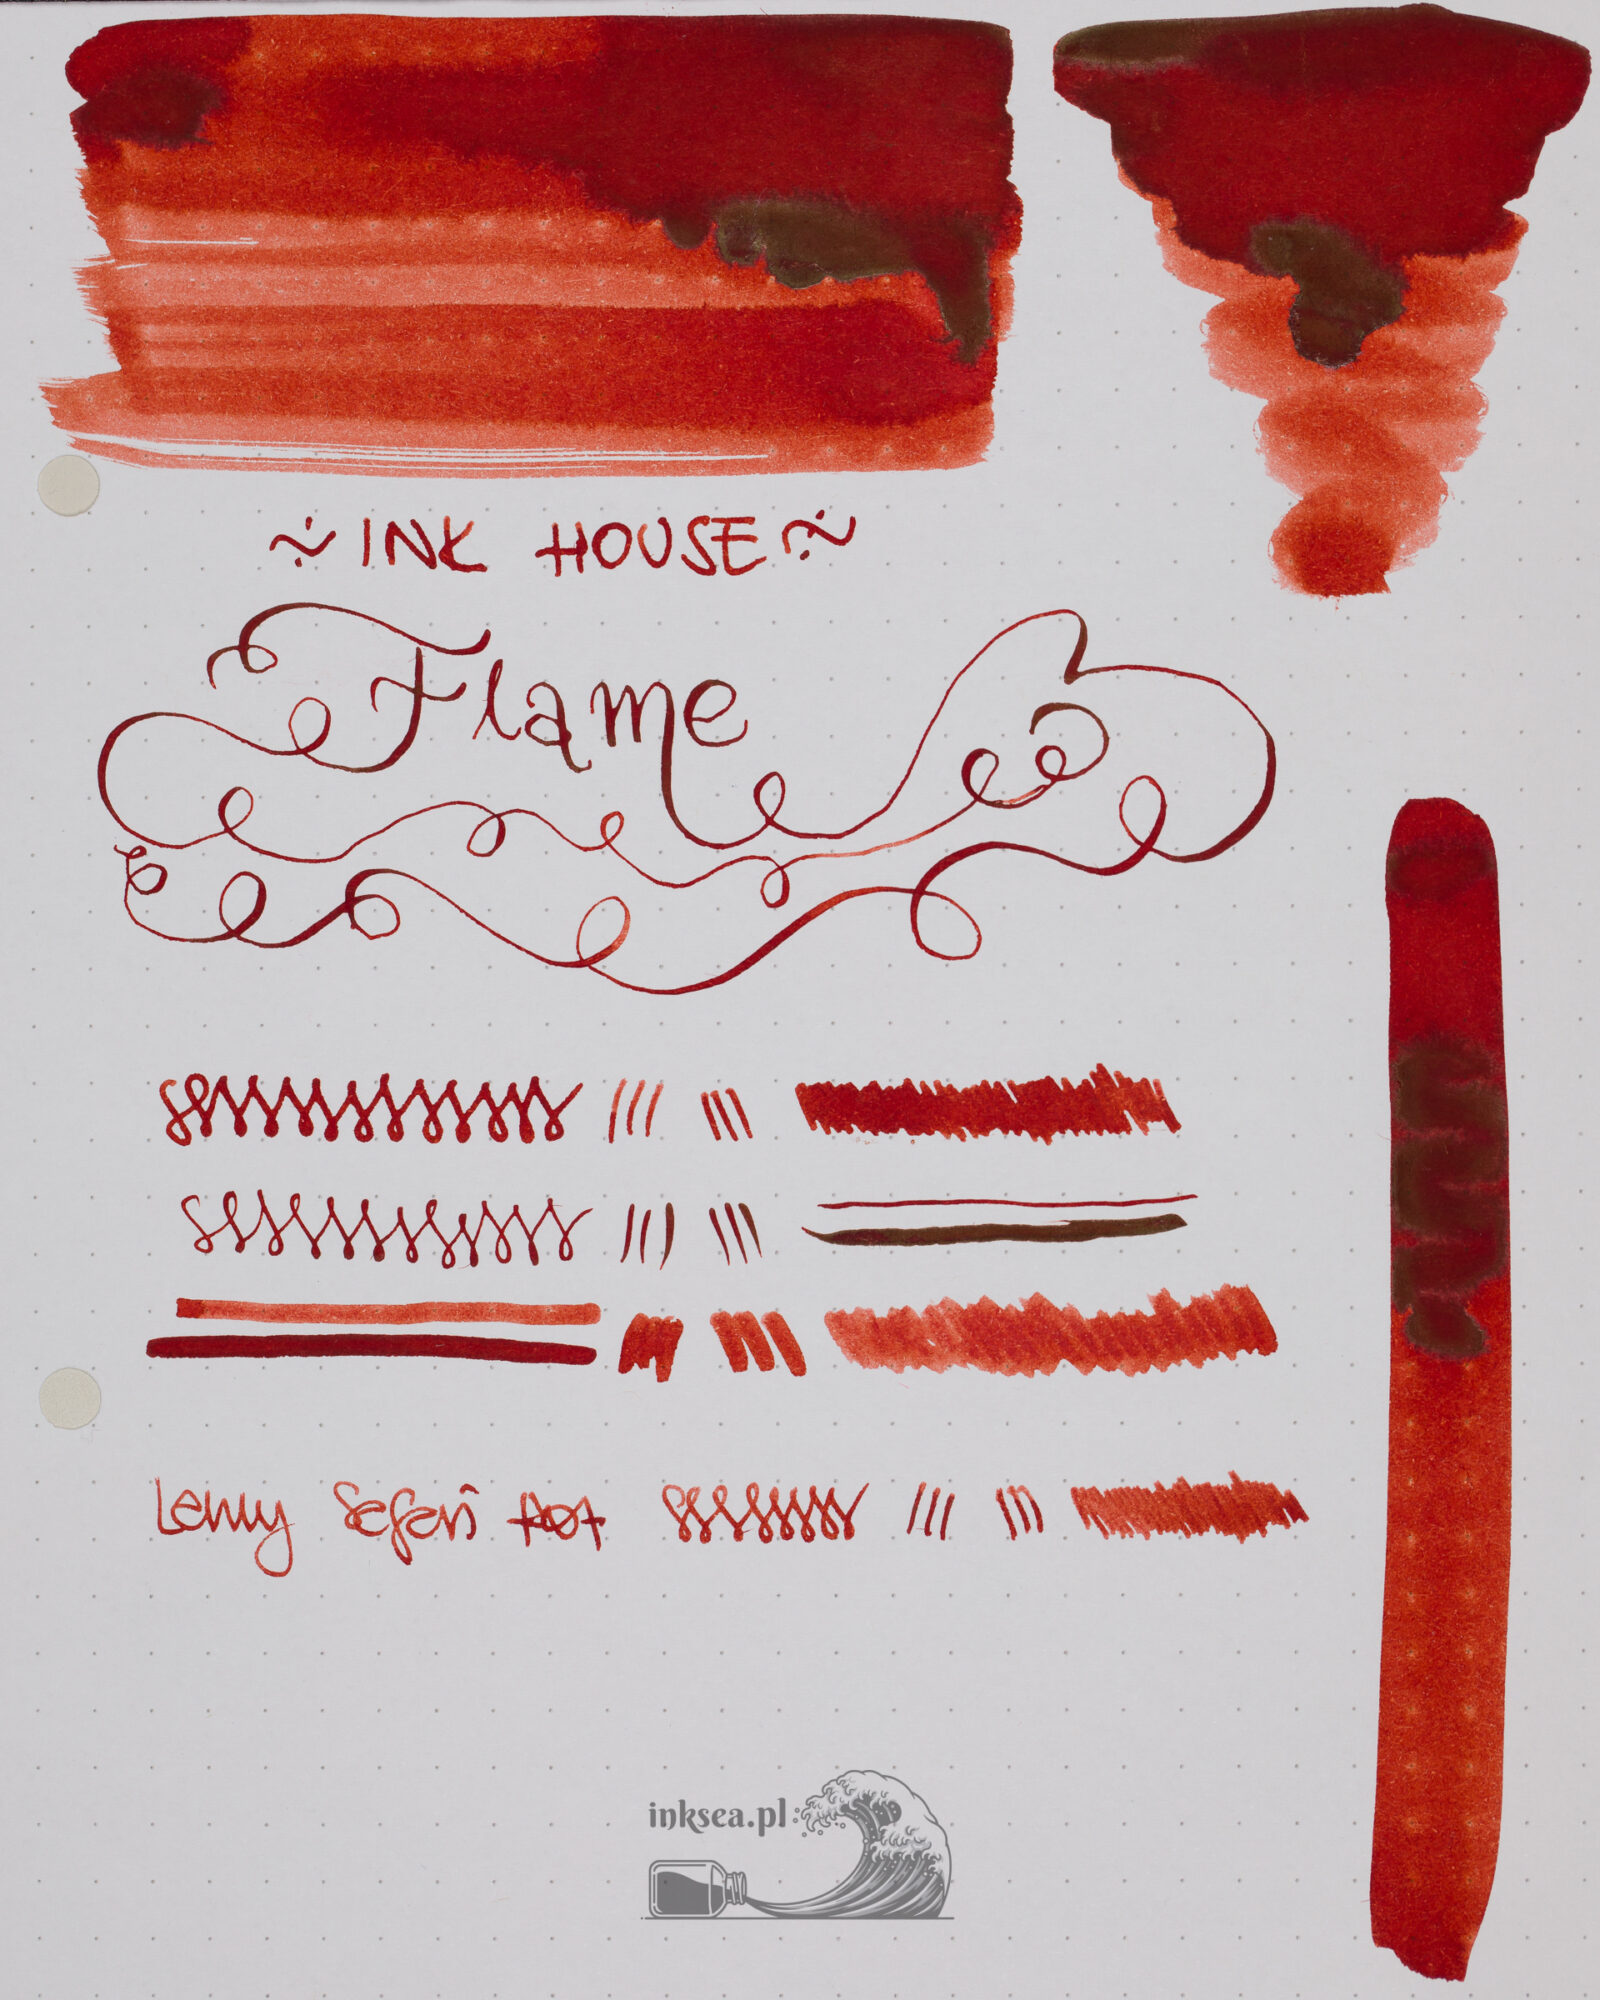 ~ INK HOUSE ~
Flame
Lamy Safari
inksea.pl